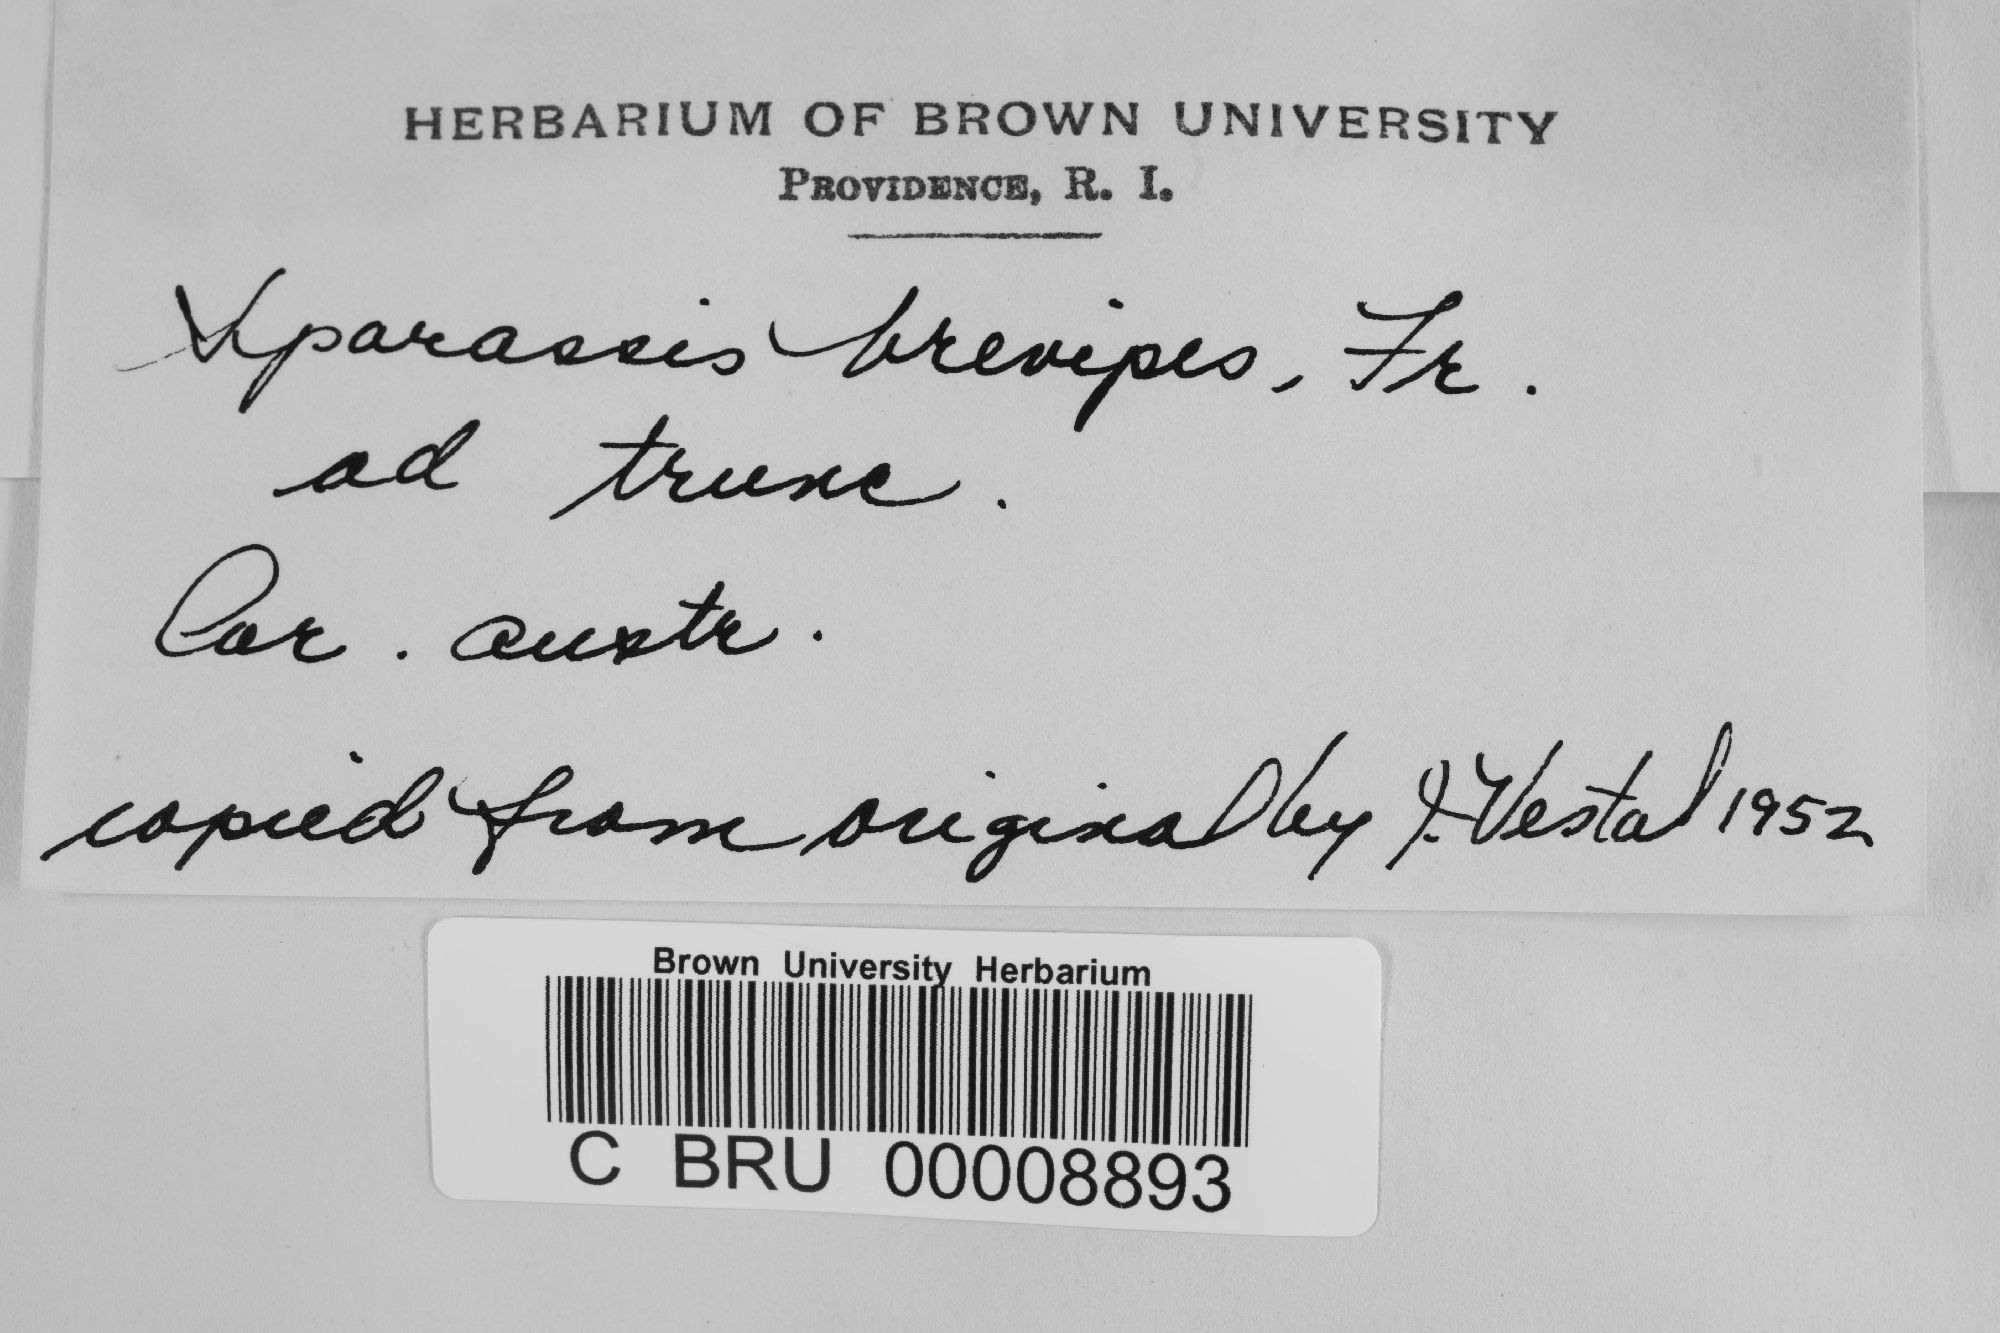 HERBARIUM OF BROWN UNIVERSITY
PROVIDENCE, R. I.
Sparassis brevipes, Fr.
ad trunc.
Car. austr.
copied from original by J. Vestal 1952
Brown University Herbarium
C BRU 00008893